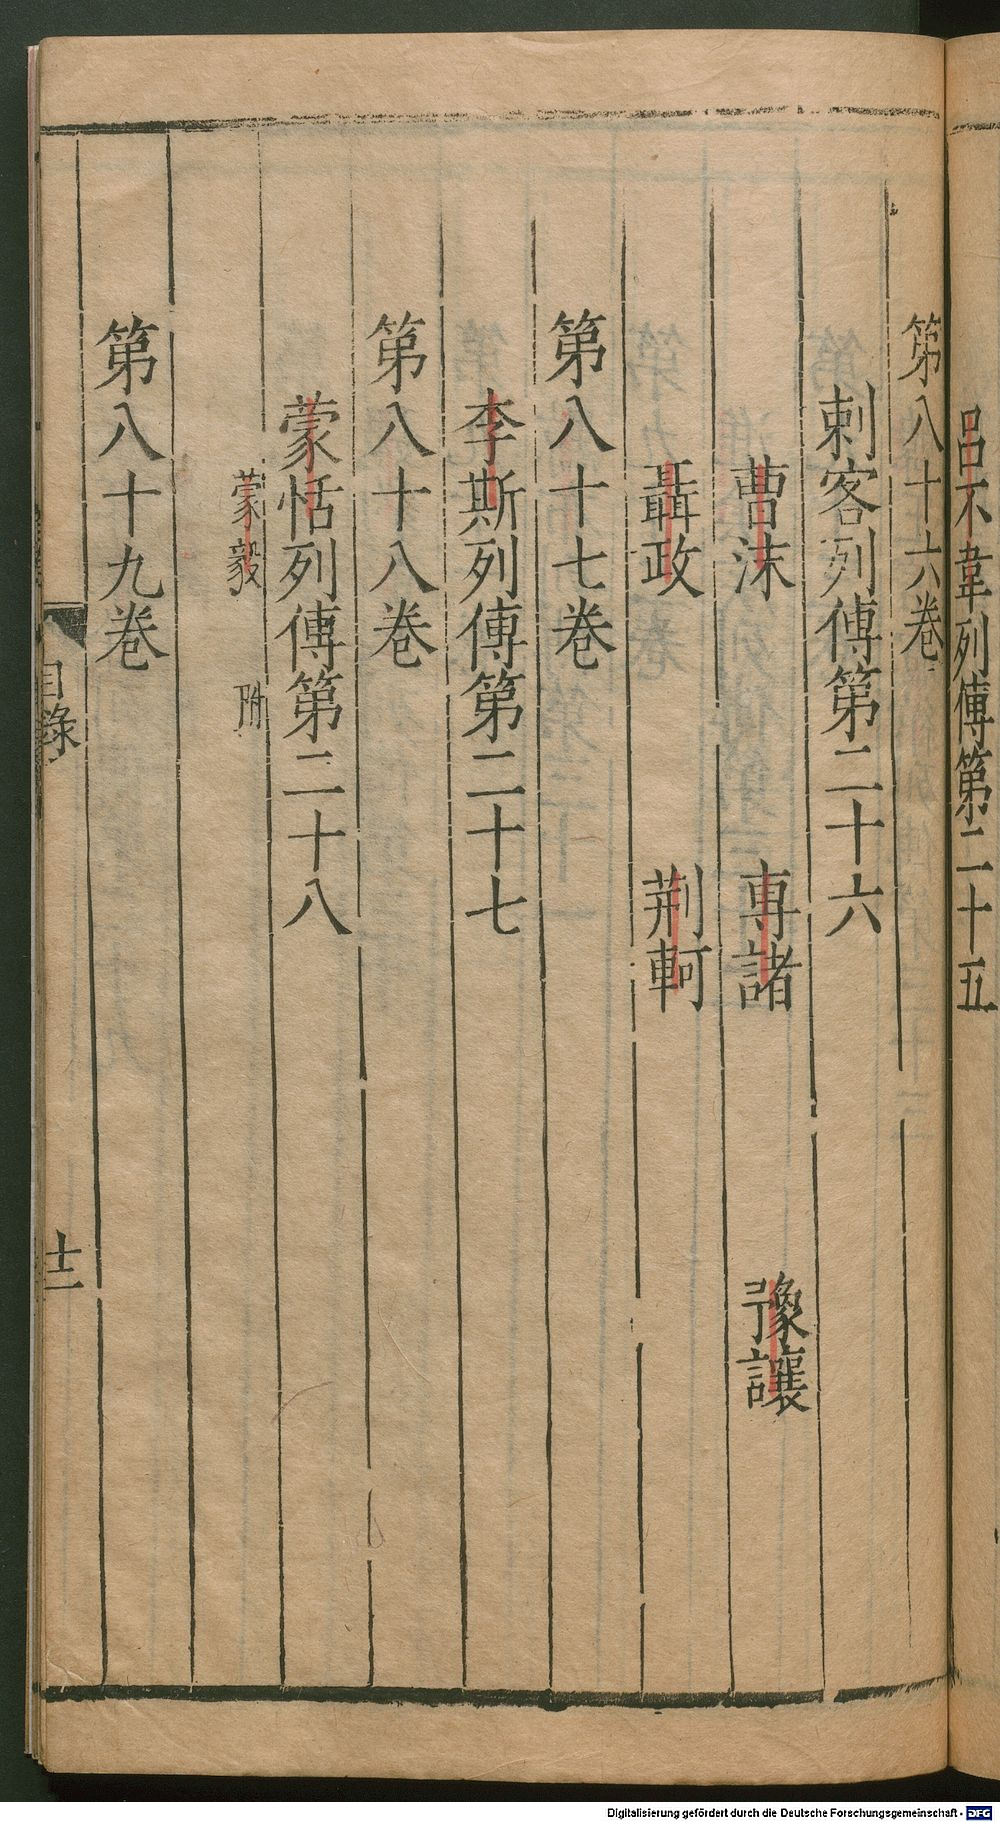 呂不韋列傳第二十五
第八十六卷
刺客列傳第二十六
曹沫 專諸 豫讓
聶政 荆軻
第八十七卷
李斯列傳第二十七
第八十八卷
蒙恬列傳第二十八
蒙毅 附
第八十九卷
目錄
十二
Digitalisierung gefördert durch die Deutsche Forschungsgemeinschaft - DFG